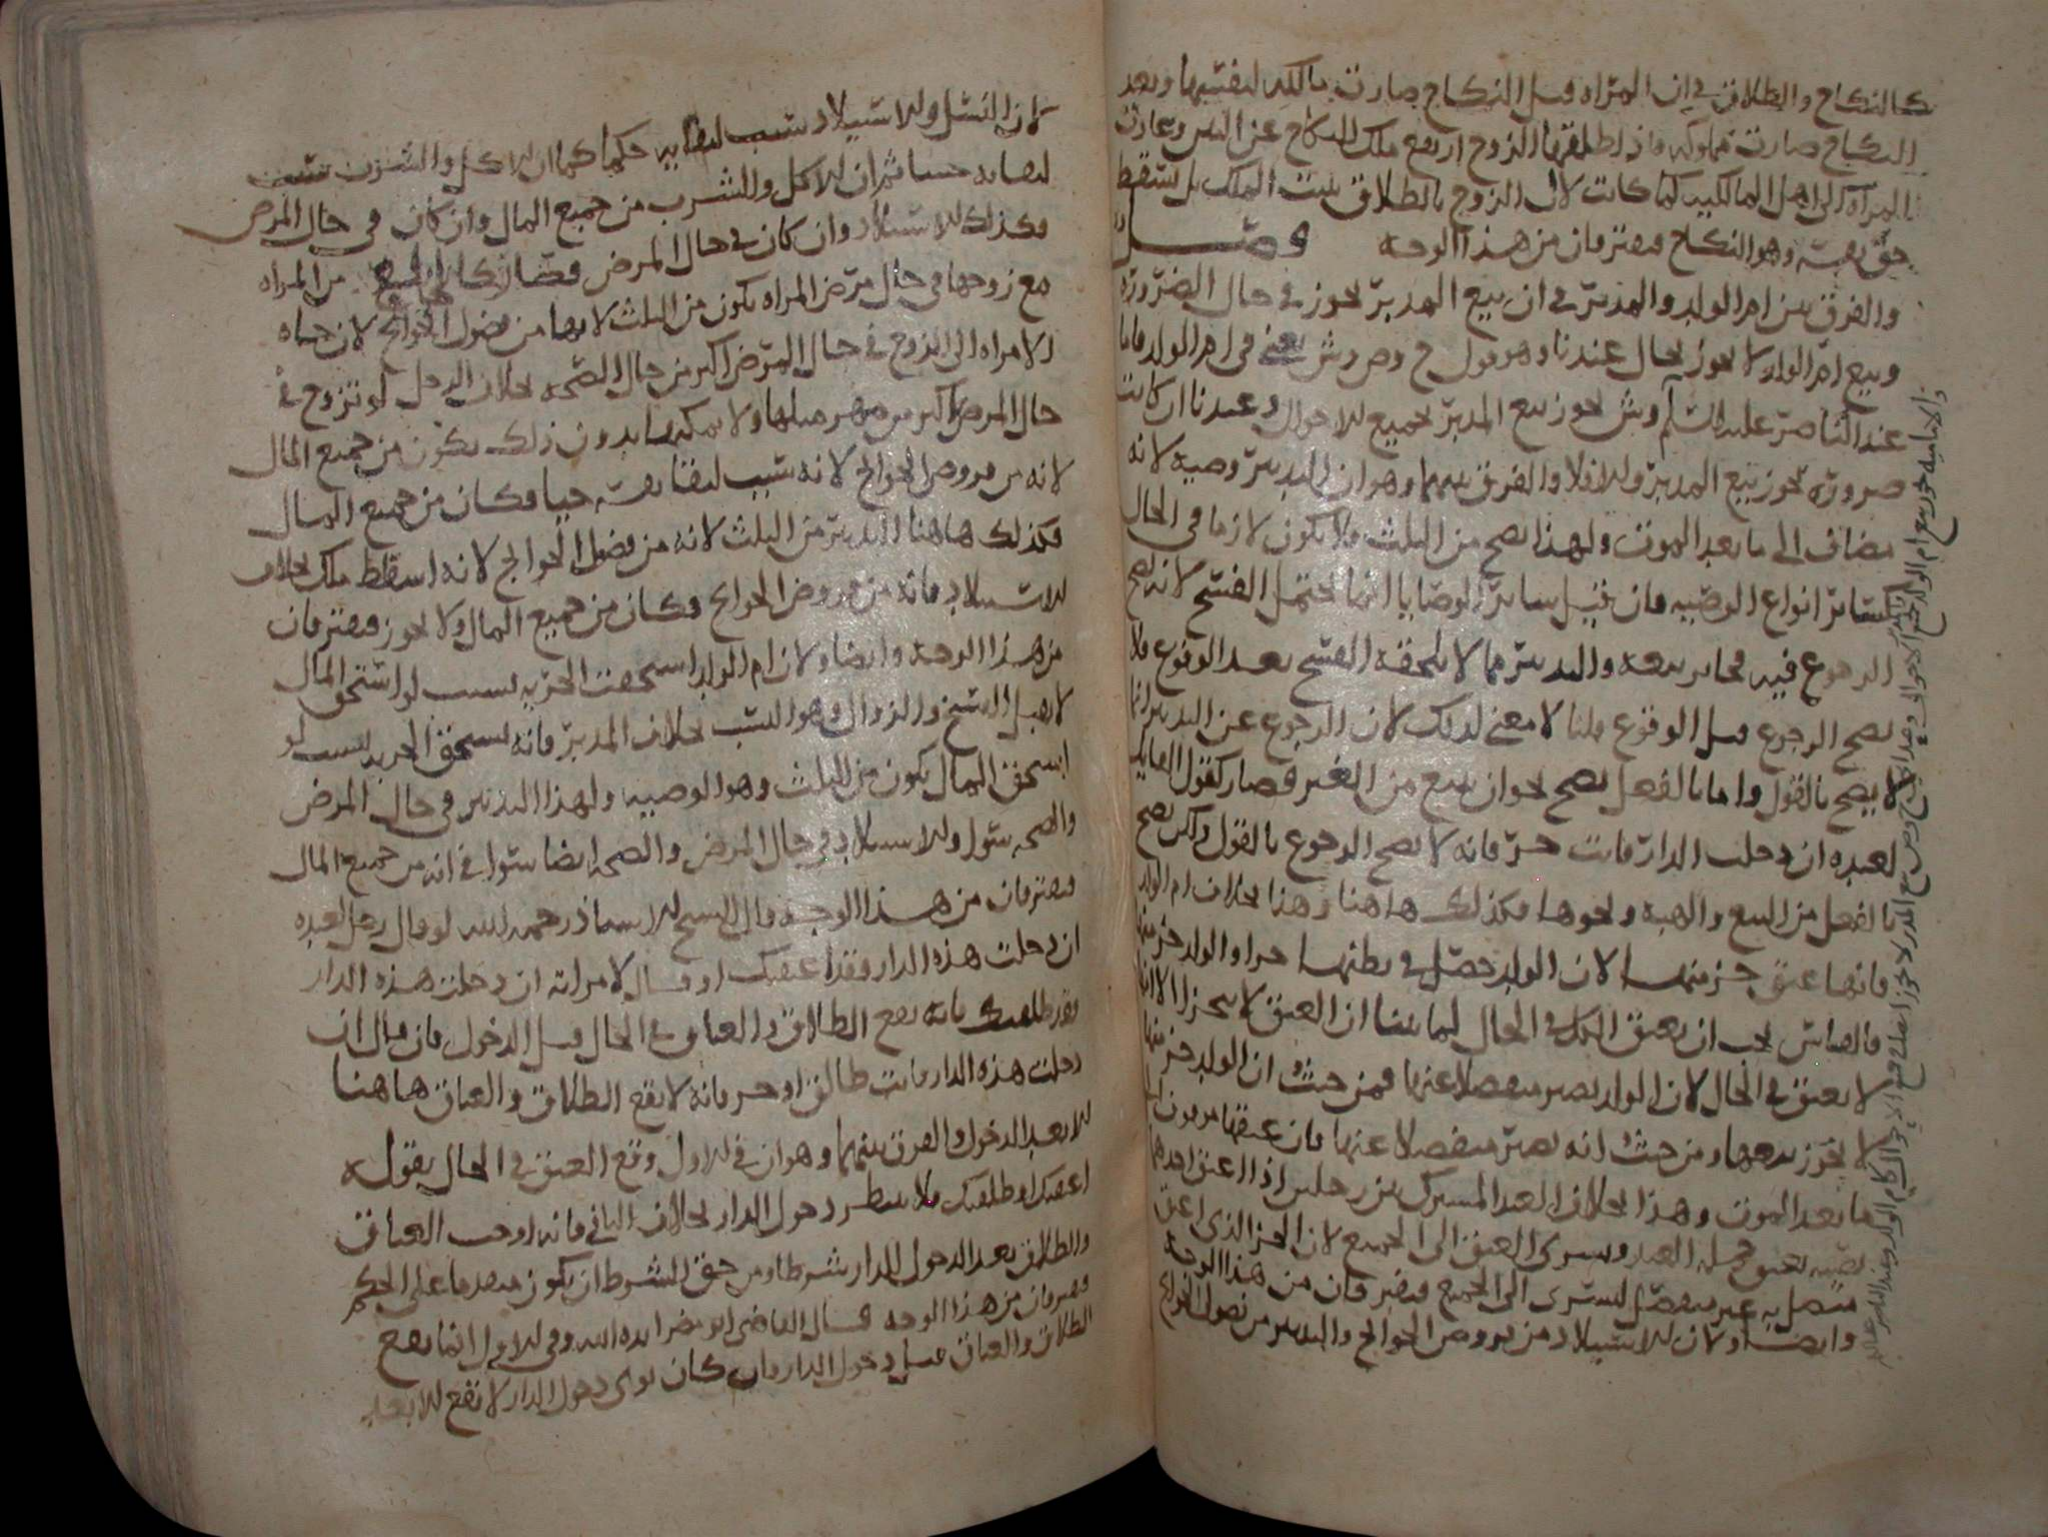 كالنكاح والطلاق في ان المراه قبل النكاح صارت مالكه لنفسها وبعد
النكاح صارت مملوكه فاذا طلقها الزوج ارتفع ملك النكاح عن البين وعادت
المراه الى اصل المالكيه كما كانت لان الزوج بالطلاق يثبت الملك بل يسقط
حق نفسه وهو النكاح فيفترقان من هذا الوجه فصل
والفرق بين ام الولد والمدبر في ان بيع المدبر يجوز في حال الضروره
وبيع ام الولد لا يجوز بحال عندنا وهو قول ح وص وش يعني في ام الولد فاما
عند الناصر عليه السلم وش يجوز بيع المدبر بجميع الاحوال وعندنا ان كانت
ضروره يجوز بيع المدبر والا فلا والفرق بينهما وهو ان التدبير وصيه لانه
مضاف الى ما بعد الموت ولهذا يصح من الثلث فلا يكون لازما في الحال
كسائر انواع الوصيه فان قيل سائر الوصايا انما يحتمل الفسخ لانه يصح
الرجوع فيه فجاز بيعه والتدبير مما لا يلحقه الفسخ بعد الوقوع فلا
يصح الرجوع قبل الوقوع قلنا لا معنى لذلك لان الرجوع عن التدبير انما
لا يصح بالقول واما بالفعل يصح نحو ان يبيع من الغير فصار كقول القايل
لعبده ان دخلت الدار فانت حر فانه لا يصح الرجوع بالقول ولكن يصح
بالفعل من البيع والهبه ونحوها فكذلك هاهنا وهذا بخلاف ام الولد
فانها عتق جز منها لان الولد حصل في بطنها حرا والولد جز منها
فالقياس يجب ان يعتق الكل في الحال لما بينا ان العتق لا يتجزا الا انها
لا يعتق في الحال لان الولد يصير منفصلا عنها فمن حيث ان الولد جز منها
لا يجوز بيعها ومن حيث انه يصير منفصلا عنها فان عتقها موقوف الى
ما بعد الموت وهذا بخلاف العبد المشترك بين رجلين اذا اعتق احدهما
نصيبه يعتق جمله العبد ويسرى العتق الى الجميع لان الجز الذى اعتق
متصل به غير منفصل ليسرى الى الجميع فيفترقان من هذا الوجه
وايضا ولان الاستيلاد من فروض الحوائج والتدبير من فضول الحوائج
لان النسل والاستيلاد سبب لبقايه حكما كما ان الاكل والشرب سبب
لبقايه حسا ثم ان الاكل والشرب من جميع المال وان كان في حال المرض
فكذلك الاستيلاد وان كان في حال المرض فصار كالخلع من المراه
مع زوجها في حال مرض المراه يكون من الثلث لانها من فضول الحوائج لان حياه
الامراه الى الزوج في حال المرض اكثر من حال الصحه بخلاف الرجل لو تزوج في
حال المرض باكثر من مهر مثلها ولا يمكنه بدون ذلك يكون من جميع المال
لانه من فروض الحوائج لانه سبب لبقا نفسه حيا فكان من جميع المال
فكذلك هاهنا التدبير من الثلث لانه من فضول الحوائج لانه اسقاط ملك بخلاف
الاستيلاد فانه من فروض الحوائج فكان من جميع المال ولا يجوز فيفترقان
من هذا الوجه وايضا ولان ام الولد استحقت الحريه بسبب لو استحق المال
لا يقبل الفسخ والزوال وهو النسب بخلاف المدبر فانه يستحق الحريه بسبب لو
استحق المال يكون من الثلث وهو الوصيه ولهذا التدبير في حال المرض
والصحه سوا والاستيلاد في حال المرض والصحه ايضا سوا في انه من جميع المال
فيفترقان من هذا الوجه قال الشيخ الاستاذ رحمه الله لو قال رجل لعبده
ان دخلت هذه الدار فقد اعتقتك او قال لامراته ان دخلت هذه الدار
فقد طلقتك فانه يقع الطلاق والعتاق في الحال قبل الدخول فان قال ان
دخلت هذه الدار فانت طالق او حر فانه لا يقع الطلاق والعتاق هاهنا
الا بعد الدخول والفرق بينهما وهو ان في الاول وقع العتق في الحال بقوله
اعتقتك او طلقتك فلا ينتظر دخول الدار بخلاف الثاني فانه اوجب العتاق
والطلاق بعد الدخول للدار شرطا ومن حق الشرط ان يكون متقدما على الحكم
فيفترقان من هذا الوجه قال القاضى ابو مضر ايده الله وفي الاول انما يقع
الطلاق والعتاق قبل دخول الدار فان كان نوى دخول الدار لا يقع الا بعد